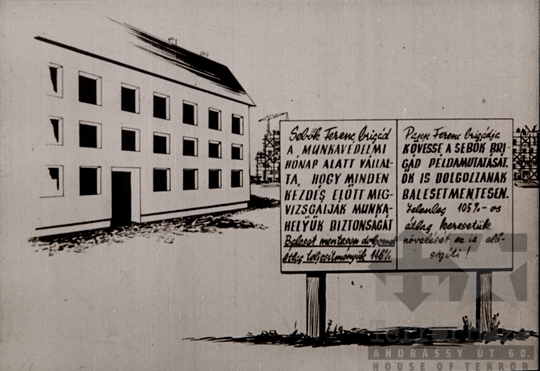 Sebők Ferenc brigád
A MUNKAVÉDELMI
HÓNAP ALATT VÁLLAL-
TA, HOGY MINDEN
KEZDÉS ELŐTT MEG-
VIZSGÁLJÁK MUNKA-
HELYÜK BIZTONSÁGÁT
Baleset mentesen dolgoznak
átlag teljesítményük 146%
Papp Ferenc brigádja
KÖVESSE A SEBŐK BRI-
GÁD PÉLDAMUTATÁSÁT.
ŐK IS DOLGOZZANAK
BALESETMENTESEN.
Jelenleg 105%-os
átlag keresetük
növelését ez is elő-
segíti!
ANDRÁSSY ÚT 60.
HOUSE OF TERROR